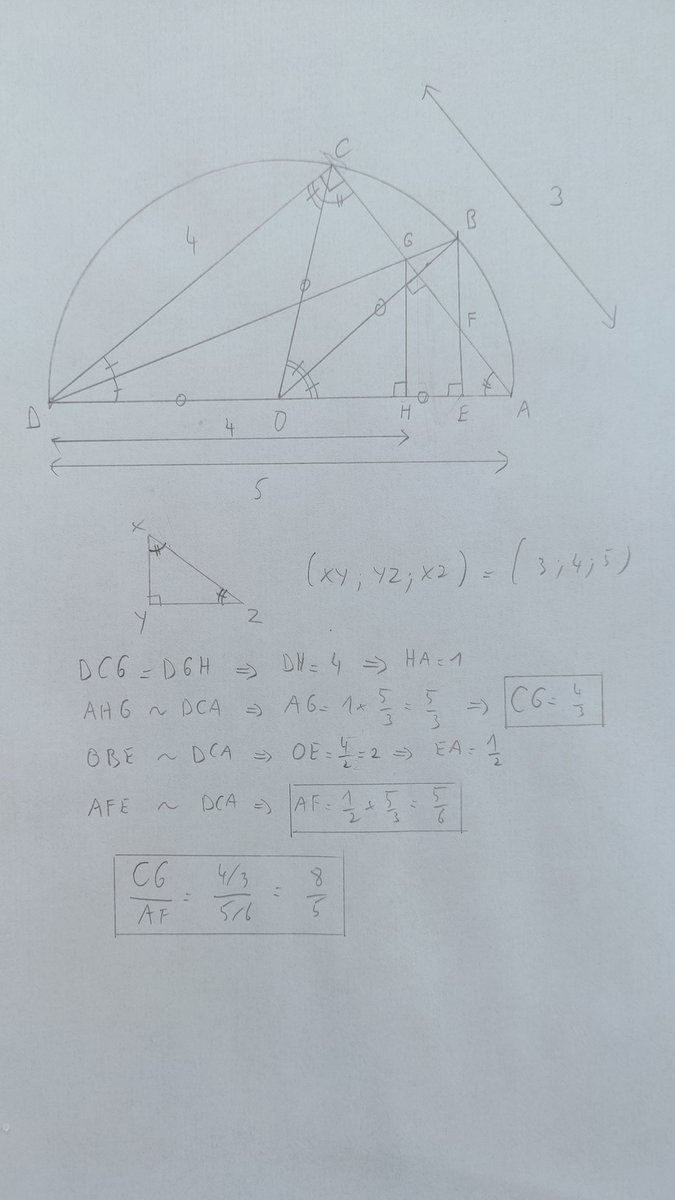 C
3
4
B
G
F
D
O
H
E
A
4
5
X
Y
Z
(XY; YZ; XZ) = (3; 4; 5)
DCG = DGH ⇒ DH = 4 ⇒ HA = 1
AHG ~ DCA ⇒ AG = 1 × 5/3 = 5/3 ⇒ CG = 4/3
OBE ~ DCA ⇒ OE = 4/2 = 2 ⇒ EA = 1/2
AFE ~ DCA ⇒ AF = 1/2 × 5/3 = 5/6
CG/AF = 4/3 / 5/6 = 8/5